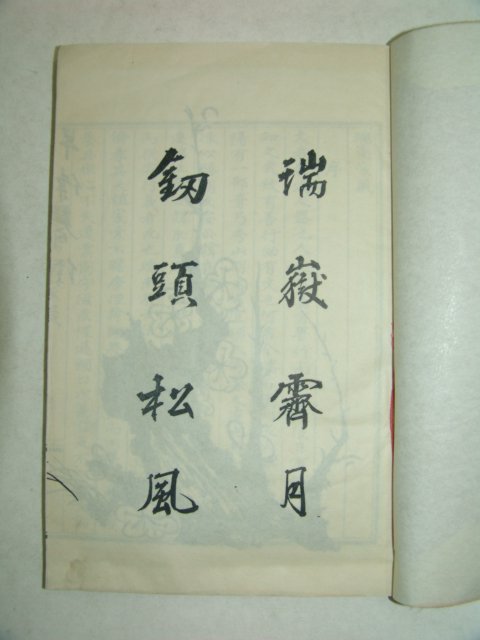 瑞嶽霽月
釰頭松風